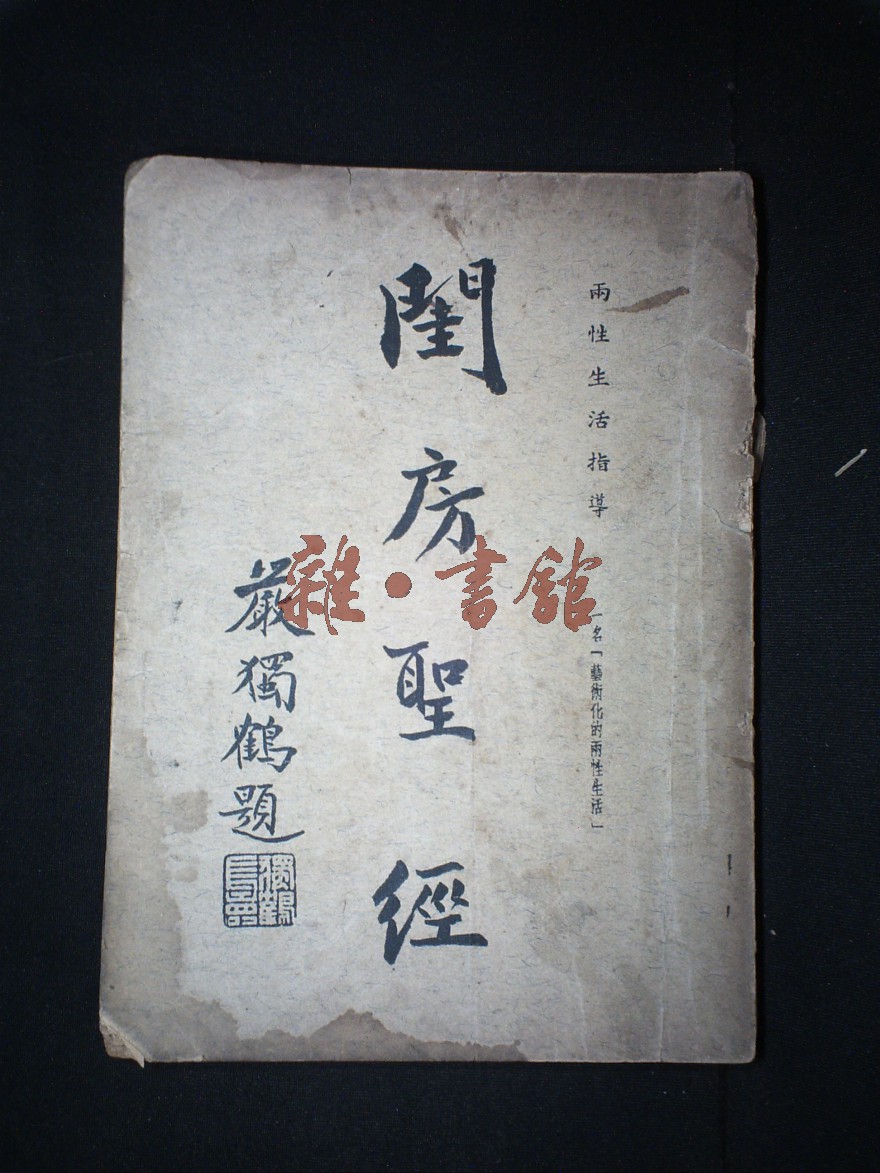 兩性生活指導
一名「藝術化的兩性生活」
閨房聖經
嚴獨鶴題
雜·書館